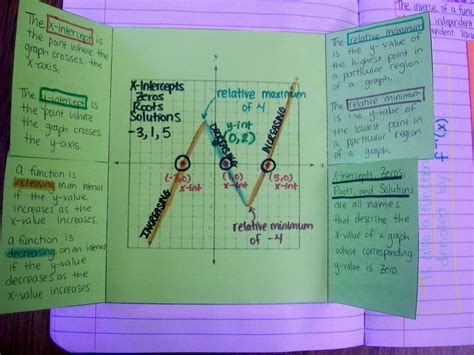 The x-intercept is
the point where the
graph crosses the
x-axis.
The y-intercept is
the point where
the graph crosses
the y-axis.
A function is
increasing on an interval
if the y-value
increases as the
x-value increases.
A function is
decreasing on an interval
if the y-value
decreases as the
x-value increases.
X-Intercepts
Zeros
Roots
Solutions
-3, 1, 5
y
relative maximum
of 4
y-int
(0, 2)
INCREASING
DECREASING
INCREASING
x-int
(1, 0)
x-int
(5, 0)
x-int
relative minimum
of -4
The relative maximum
is the y-value of
the highest point in
a particular region
of a graph.
The relative minimum
is the y-value of
the lowest point in
a particular region
of a graph.
X-intercepts, Zeros,
Roots, and Solutions
are all names
that describe the
x-value of a graph
whose corresponding
y-value is zero.
The inverse of a func
independent
f⁻¹(x)
denoted by